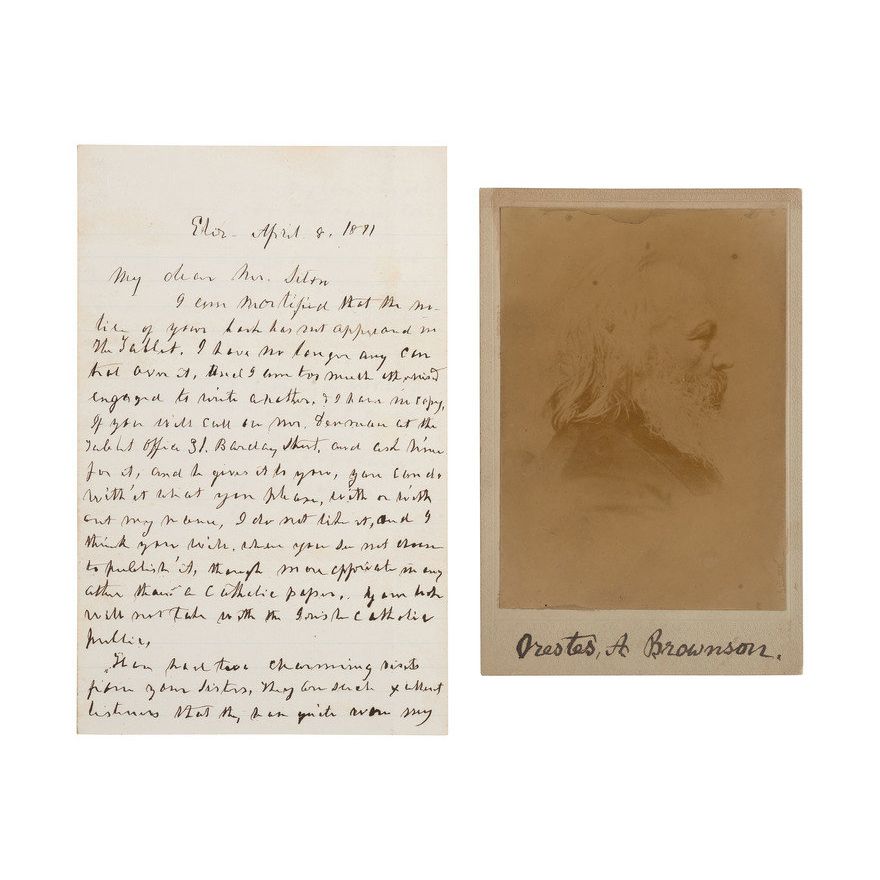 Eliz. April 8. 1871
My dear Mr. Seton
I am mortified that the no-
tice of your book has not appeared in
the Tablet. I have no longer any con
trol over it, and I am too much otherwise
engaged to write another. & I have no copy.
If you will call on Mr. Denman at the
Tablet Office 31. Barclay Street, and ask him
for it, and he gives it to you, you can do
with it what you please, with or with
out my name, I do not like it, and I
think you will. when you do not
to publish it, though more appropriate in any
other than a Catholic paper. your book
will not take with the Irish Catholic
public,
I have had two charming visits
from your Sisters, They are such excellent
listeners that they have quite won my
Orestes, A Brownson.